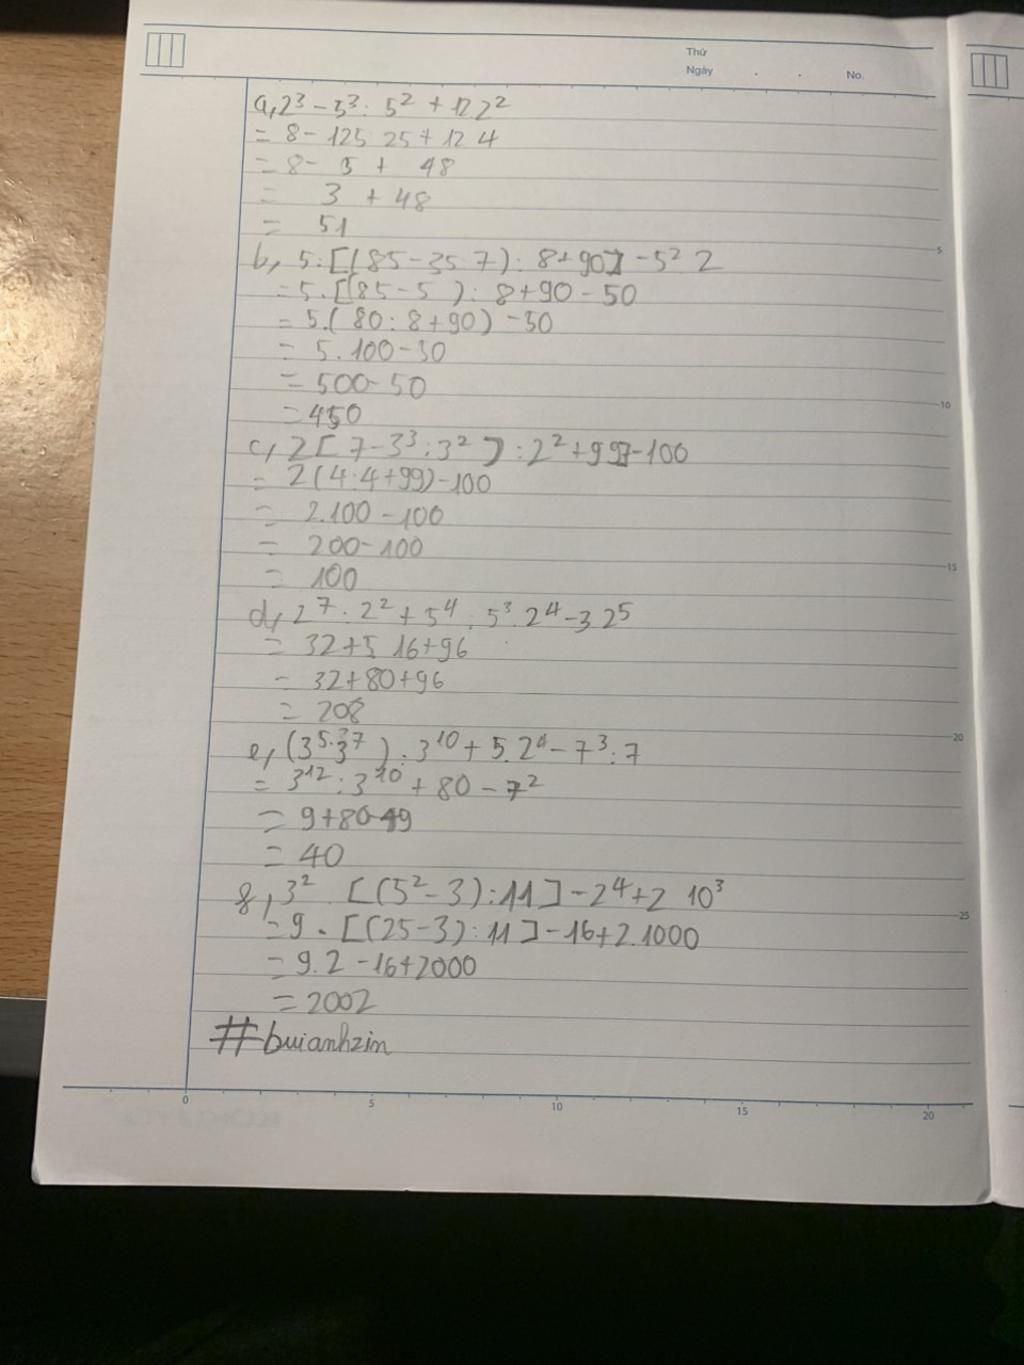 Thứ
Ngày . . No.
a, 2³ - 5³ : 5² + 12 2²
= 8 - 125 25 + 12 4
= 8 - 5 + 48
= 3 + 48
= 51
b, 5 . [(85 - 35 7) : 8 + 90] - 5² 2
= 5 . [(85 - 5 ) : 8 + 90 - 50
= 5.( 80 : 8 + 90) - 50
= 5 . 100 - 50
= 500 - 50
= 450
c, 2 [ 7 - 3³ : 3² ) : 2² + 99] - 100
= 2 (4 : 4 + 99) - 100
= 2.100 - 100
= 200 - 100
= 100
d, 2⁷ : 2² + 5⁴ : 5³ . 2⁴ - 3 2⁵
= 32 + 5 16 + 96
= 32 + 80 + 96
= 208
e, (3⁵ . 3⁷ ) : 3¹⁰ + 5 . 2⁴ - 7³ : 7
= 3¹² : 3¹⁰ + 80 - 7²
= 9 + 80 - 49
= 40
g, 3² . [(5² - 3) : 11] - 2⁴ + 2 10³
= 9 . [(25 - 3) : 11] - 16 + 2.1000
= 9.2 - 16 + 2000
= 2002
#buianhzin
5
10
15
20
25
0 5 10 15 20